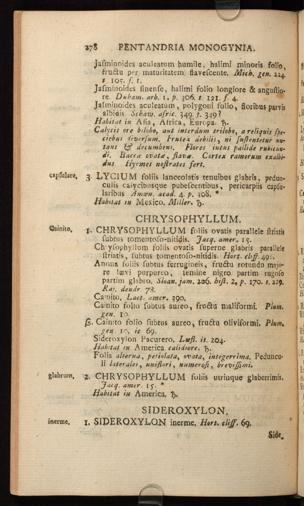 278 PENTANDRIA MONOGYNIA.
Jasminoides aculeatum humile, halimi minoris folio,
fructu per maturitatem flavescente. Mich. gen. 224.
t. 105. f. 1.
Jasminoides sinense, halimi folio longiore & angustio-
re. Duham. arb. 1. p. 306. t. 121. f. 4.
Jasminoides aculeatum, polygoni folio, floribus parvis
albidis. Schaw. afric. 349. f. 349?
Habitat in Asia, Africa, Europa. ♄.
Calycis ore bilobo, aut interdum trilobo, a reliquis spe-
ciebus diversum. Frutex debilis, ni sustentetur nu-
tans & decumbens. Flores intus pallide rubicun-
di. Bacca ovatæ, flavæ. Cortex ramorum exalbi-
dus. Insomes nostrates fert.
capsulare, 3. LYCIUM foliis lanceolatis tenuibus glabris, pedun-
culis calycibusque pubescentibus, pericarpiis capsu-
laribus Amœn. acad. 4. p. 308. *
Habitat in Mexico. Miller. ♄.
CHRYSOPHYLLUM.
Cainito, 1. CHRYSOPHYLLUM foliis ovatis parallele striatis
subtus tomentoso-nitidis. Jacq. amer. 15.
Chrysophyllum foliis ovatis superne glabris parallele
striatis, subtus tomentoso-nitidis. Hort. cliff. 491.
Anona foliis subtus ferrugineis, fructu rotundo majo-
re lævi purpureo, semine nigro partim rugoso
partim glabro. Sloan. jam. 206. hist. 2. p. 170. t. 229.
Raj. dendr 78.
Cainito. Laet. amer. 390.
Cainito folio subtus aureo, fructu maliformi. Plum.
gen. 10.
β. Cainito folio subtus aureo, fructu oliviformi. Plum.
gen. 10. ic 69.
Sideroxylon Pacurero. Loefl. it. 204.
Habitat in America calidiore. ♄.
Folia alterna, petiolata, ovata, integerrima. Peduncu-
li laterales, uniflori, numerosi, brevissimi.
glabrum, 2. CHRYSOPHYLLUM foliis utrinque glaberrimis.
Jacq. amer. 15. *
Habitat in America. ♄.
SIDEROXYLON.
inerme, 1. SIDEROXYLON inerme. Hort. cliff. 69.
Side.